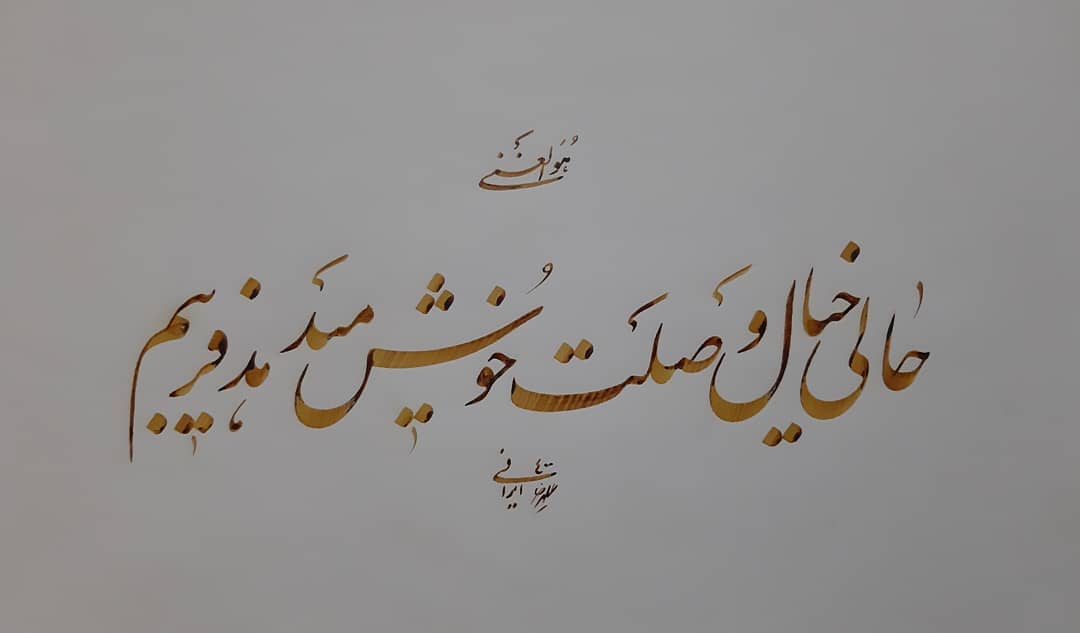 هُوَ الغنی
حالی خیال وصلت خوش میدهد فریبم
ایرانی